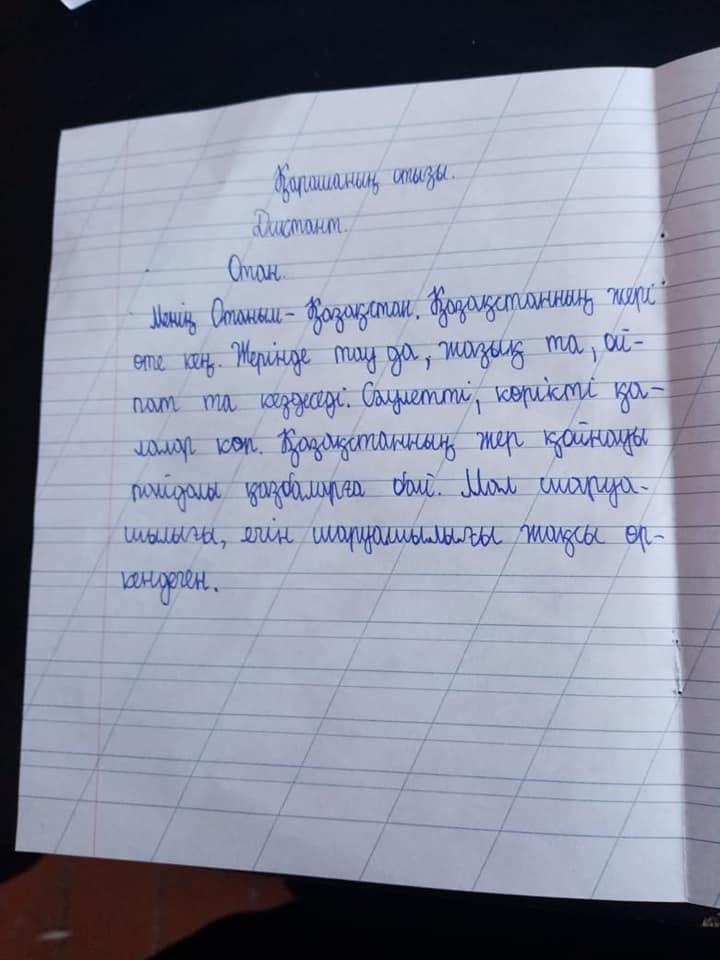 Қарашаның отызы.
Дистант.
Отан.
Менің Отаным - Қазақстан. Қазақстанның жері
өте кең. Жерінде тау да, жазық та, ой-
пат та кездеседі. Сәулетті, көрікті қа-
лалар көп. Қазақстанның жер қойнауы
пайдалы қазбаларға бай. Мал шаруа-
шылығы, егін шаруашылығы жақсы өр-
кендеген.